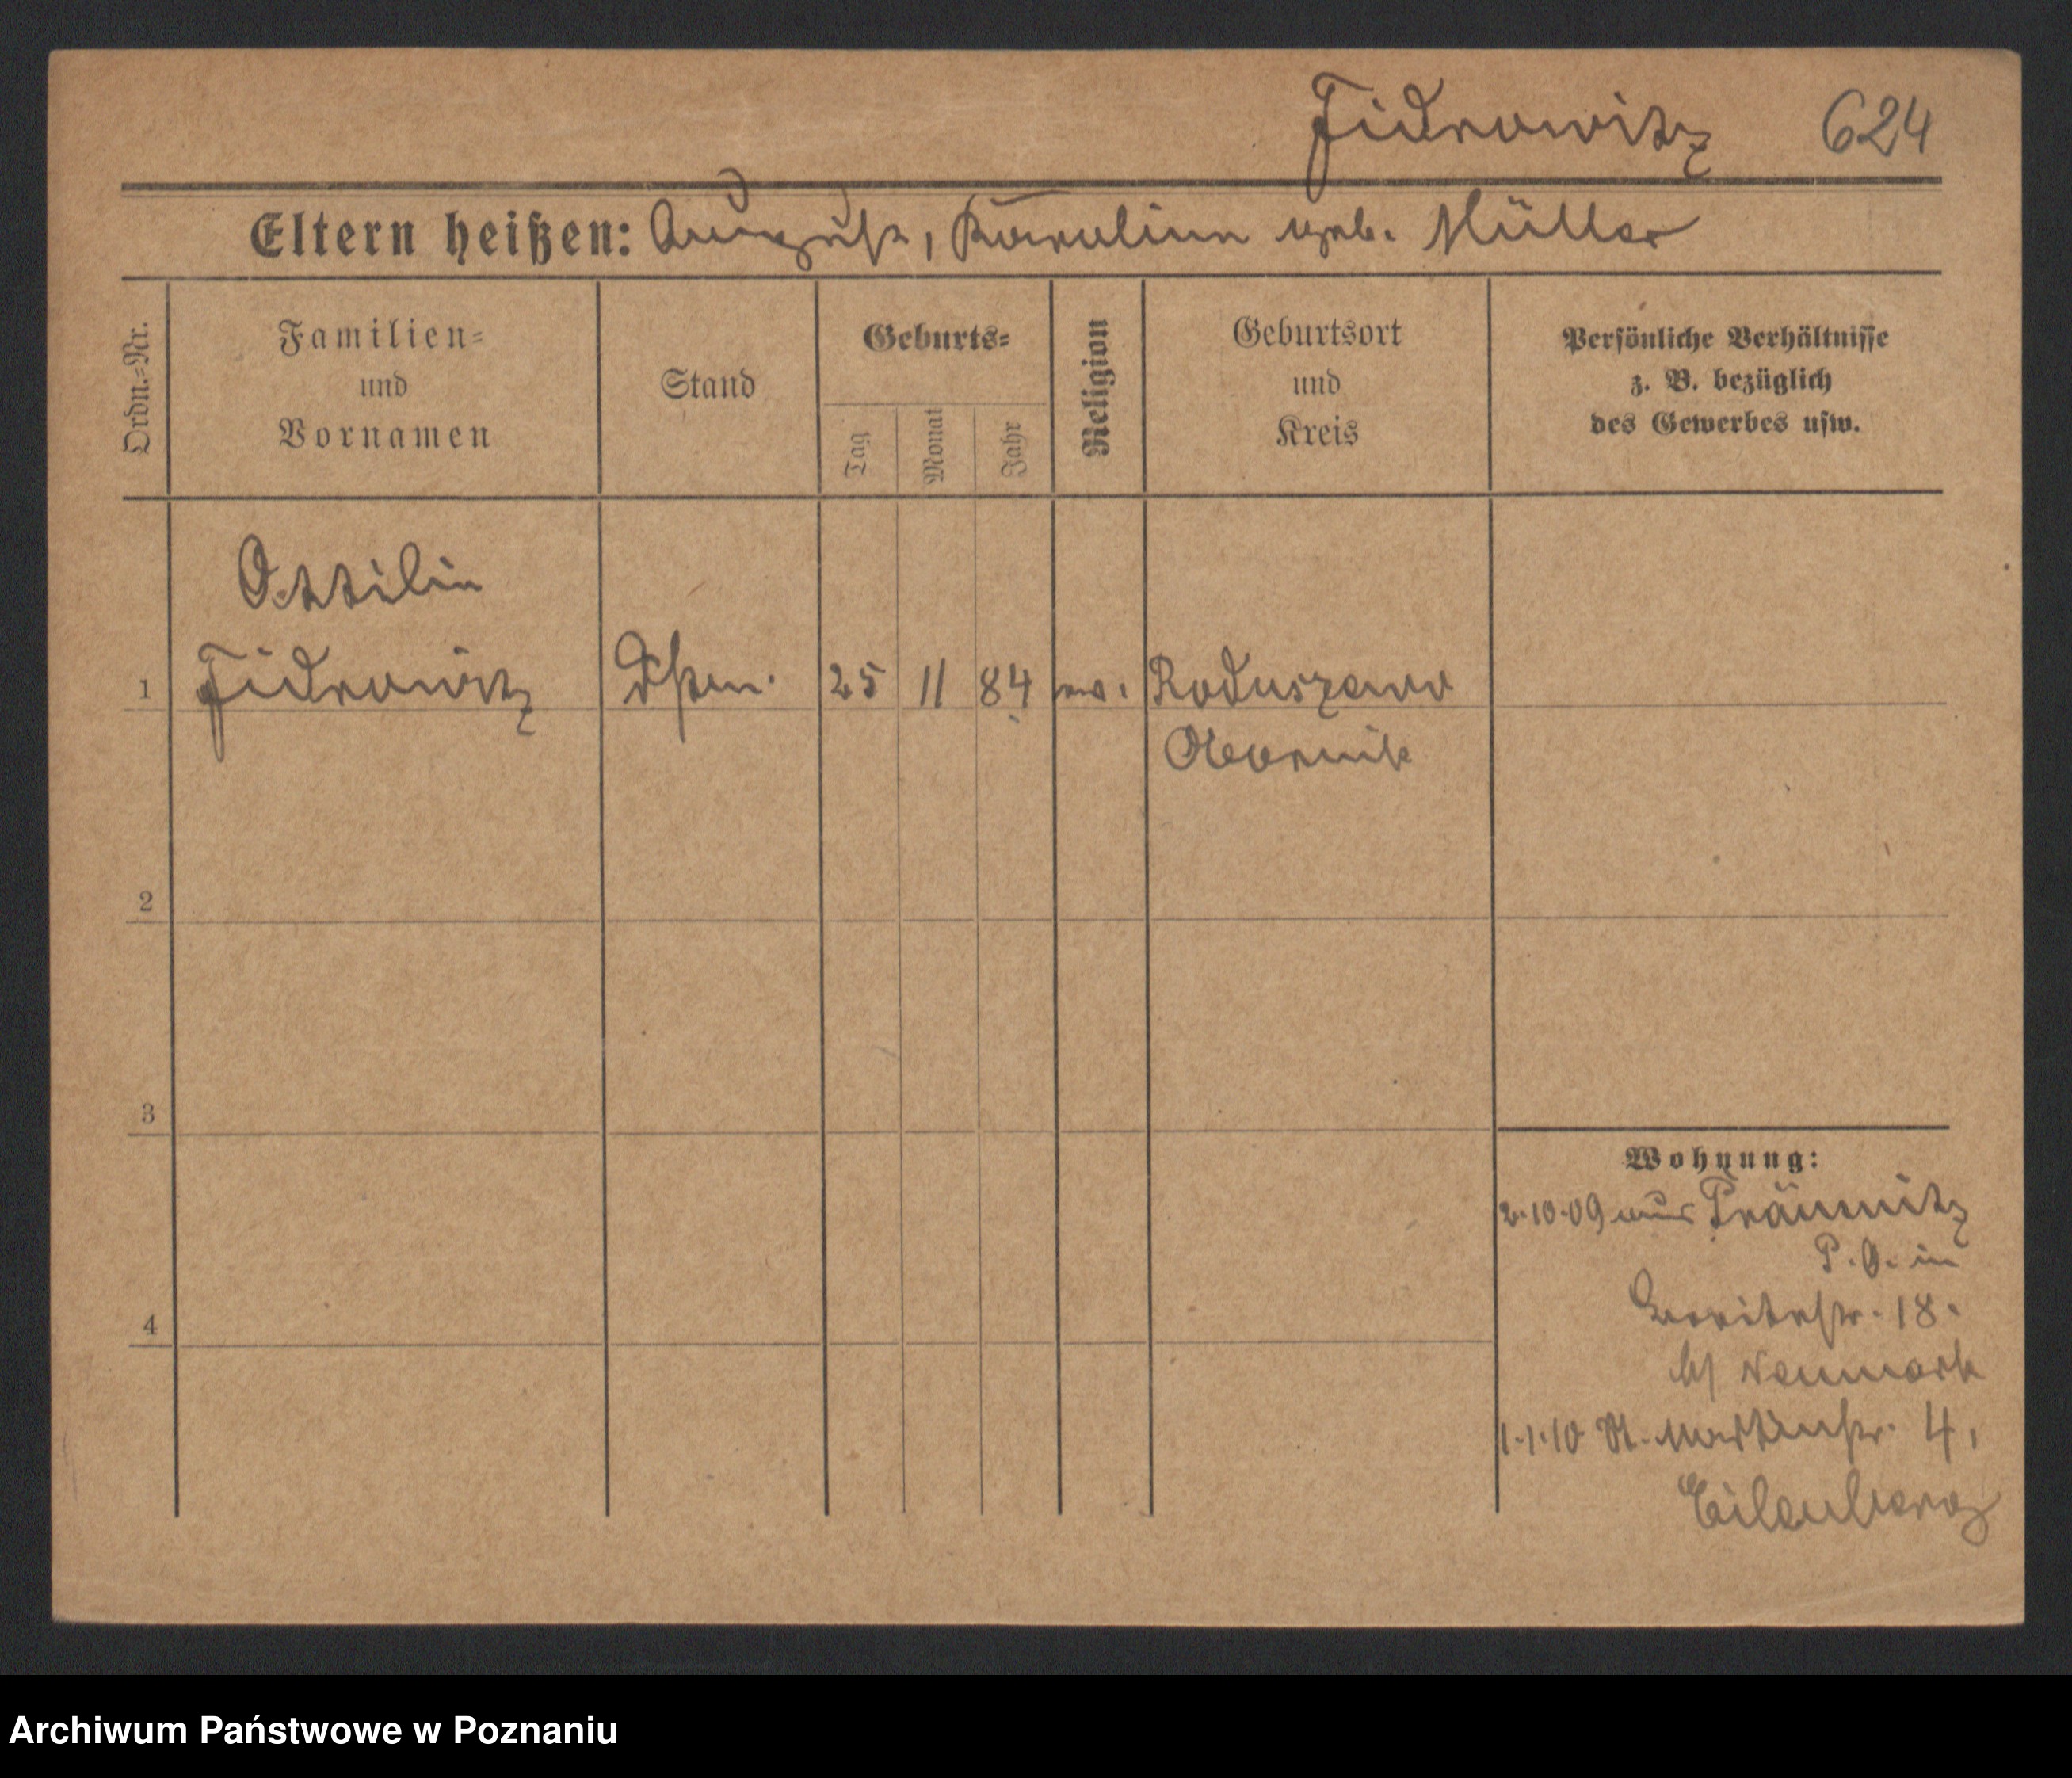 Fidrowitz 624
Eltern heißen: August, Karoline geb. Müller
Ordn.=Nr.
Familien=
und
Vornamen
Stand
Geburts=
Tag
Monat
Jahr
Religion
Geburtsort
und
Kreis
Persönliche Verhältnisse
z. B. bezüglich
des Gewerbes usw.
Ottilie
1 Fidrowitz 25 11 84 ev. Roduszewo
Obornik
2
3
4
Wohnung:
2.10.09 aus Prämnitz
P. O. in
18.
b/ Neumark
1.1.10 St. Martinstr. 4,
Eilenberg
Archiwum Państwowe w Poznaniu